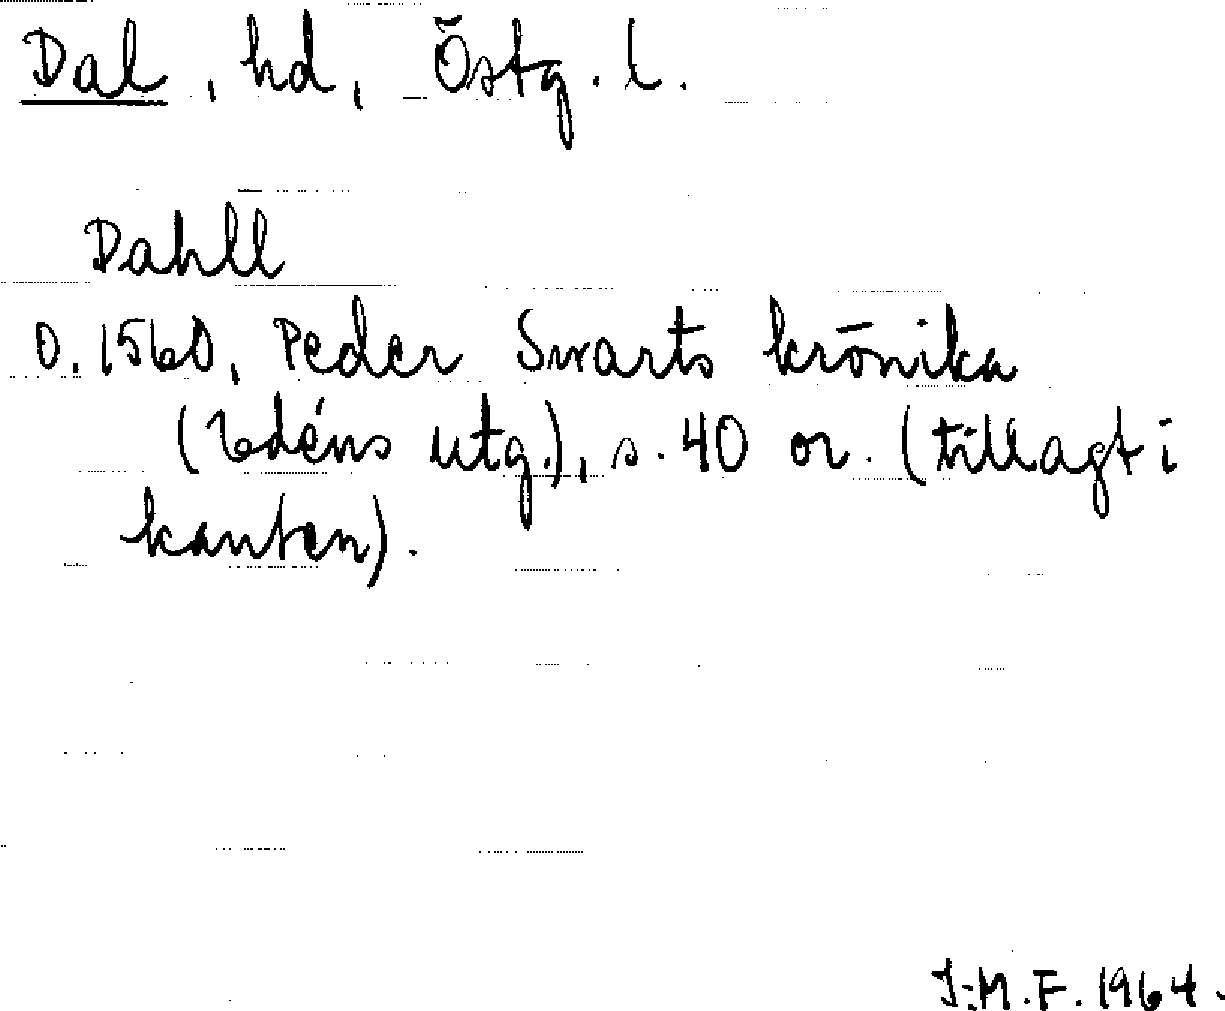 Dal, hd, Östg. l.
Dahll
o. 1560, Peder Swarts krönika
(Edéns utg.), s. 40 or. (tillagt i
kanten).
I:M.F. 1964.